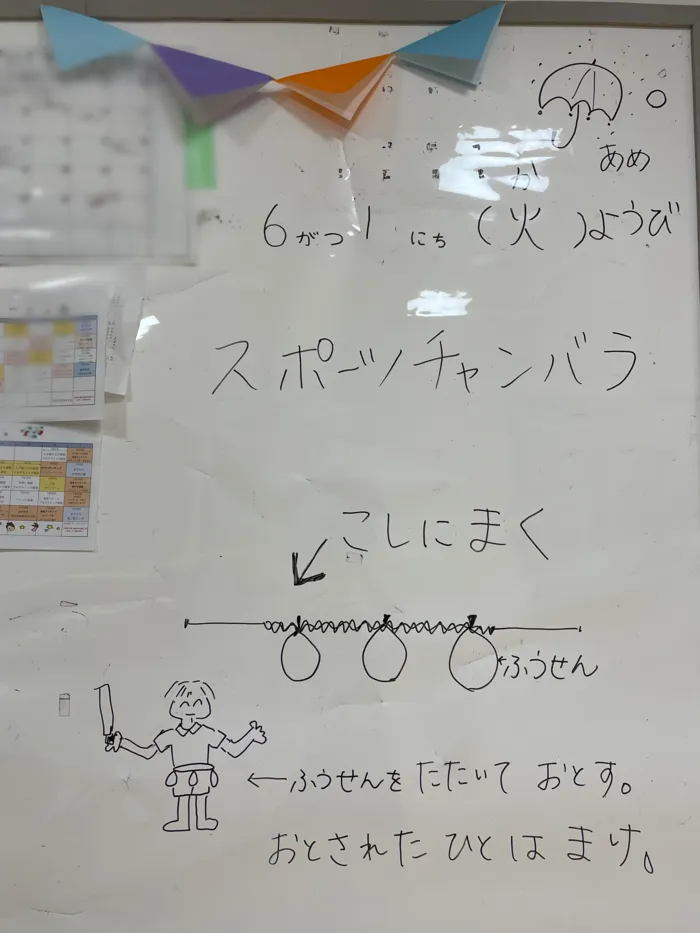 あめ
か
6がつ1にち(火)ようび
スポーツチャンバラ
こしにまく
ふうせん
←ふうせんをたたいておとす。
おとされたひとはまけ。